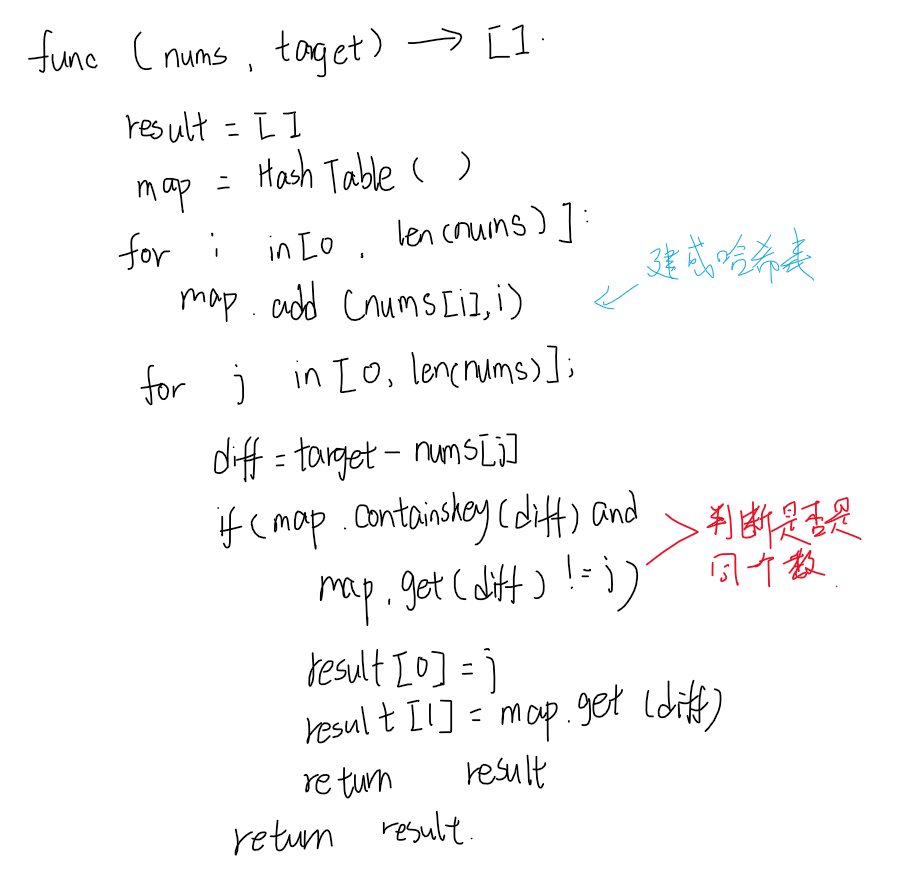 func (nums, target) → [].
result = []
map = Hash Table ( )
for i in [0, len(nums)]:
建成哈希表
map.add (nums[i], i)
for j in [0, len(nums)];
diff = target - nums[j]
if (map.containskey(diff) and
判断是否是
同个数
map.get(diff) != j)
result[0] = j
result[1] = map.get(diff)
return result
return result.